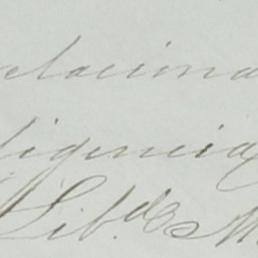 elaciona
ligencia
Lib.des M